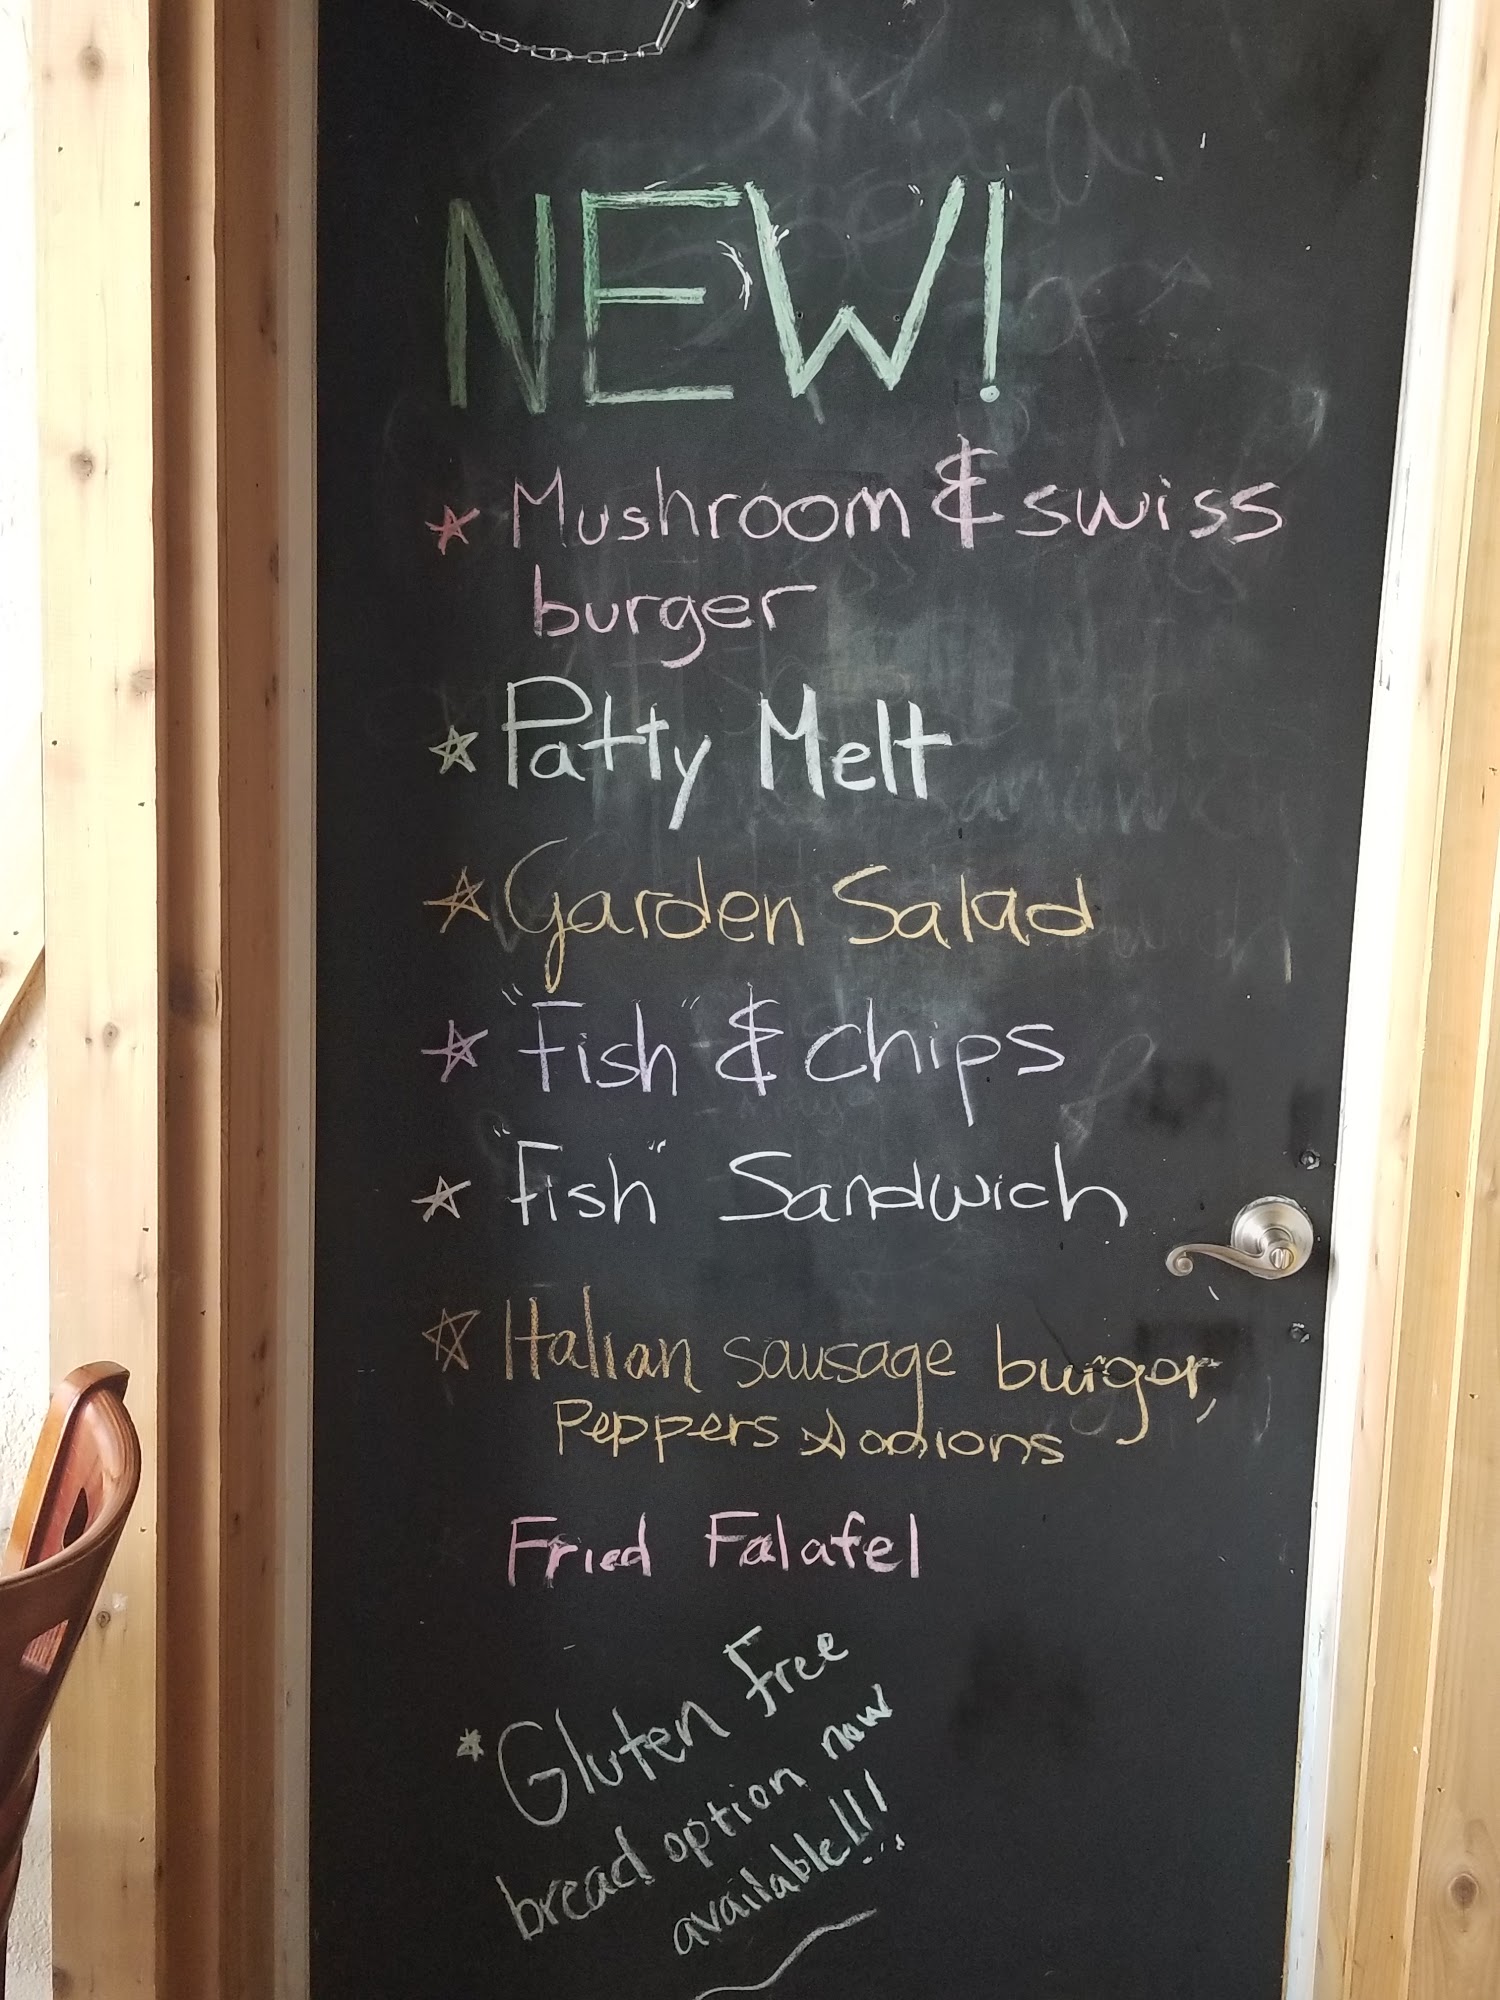 NEW!
Mushroom & swiss
burger
Patty Melt
Garden Salad
"Fish" & chips
"Fish" Sandwich
Italian sausage burger,
Peppers & onions
Fried Falafel
*Gluten Free
bread option now
available!!!